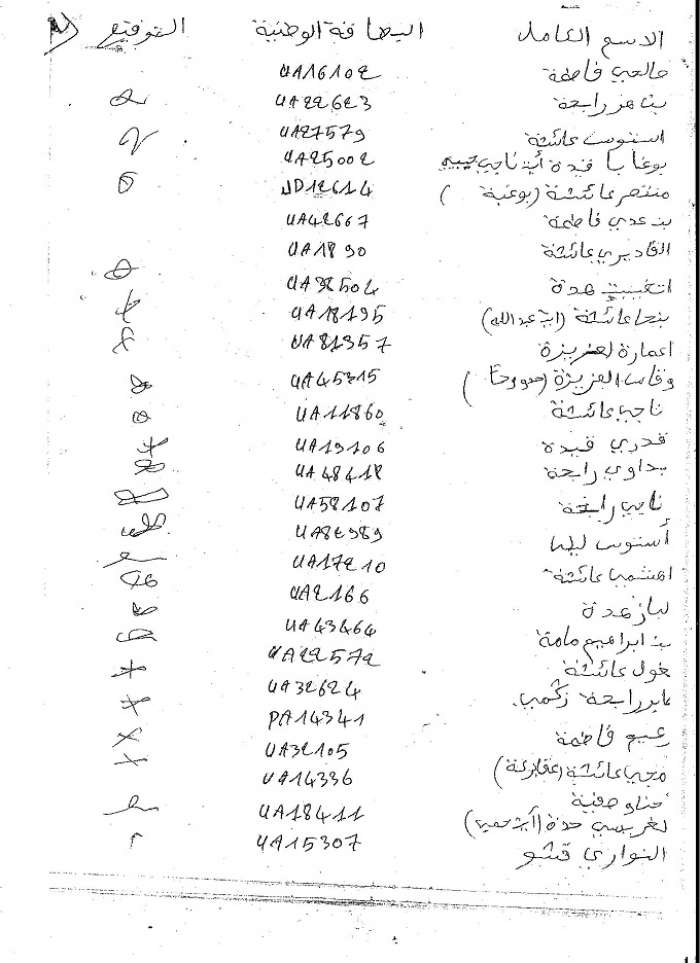 الاسم الكامل البطاقة الوطنية التوقيع
صالحي فاطمة UA16102
بنا هز رابحة UA22623
استوس عائشة UA27579
بوغابا فيدة UA25002
منتصر عائشة (بوعنبة) JD12614
بن عدي فاطمة UA42667
القاديري عائشة UA1890
هدة UA32504
بنحا عائشة (ايت عبد الله) UA18195
اعمارة لعزيزة UA81357
وقاس العزيزة UA45315
ناجي عائشة UA11860
قدري فيدة UA19106
بداوي رابحة UA48418
نايي رابحة UA58107
أستوس ليلى UA82989
اهشمي عائشة UA17210
لباز هدة UA2166
بن ابراهيم مامة UA43464
غول عائشة UA22572
عابر رابحة زكمي UA32624
زعيم فاطمة PA14341
مجي عائشة UA32105
حناو صفية UA14336
لغريسي حدة UA18411
النواري قشو UA15307